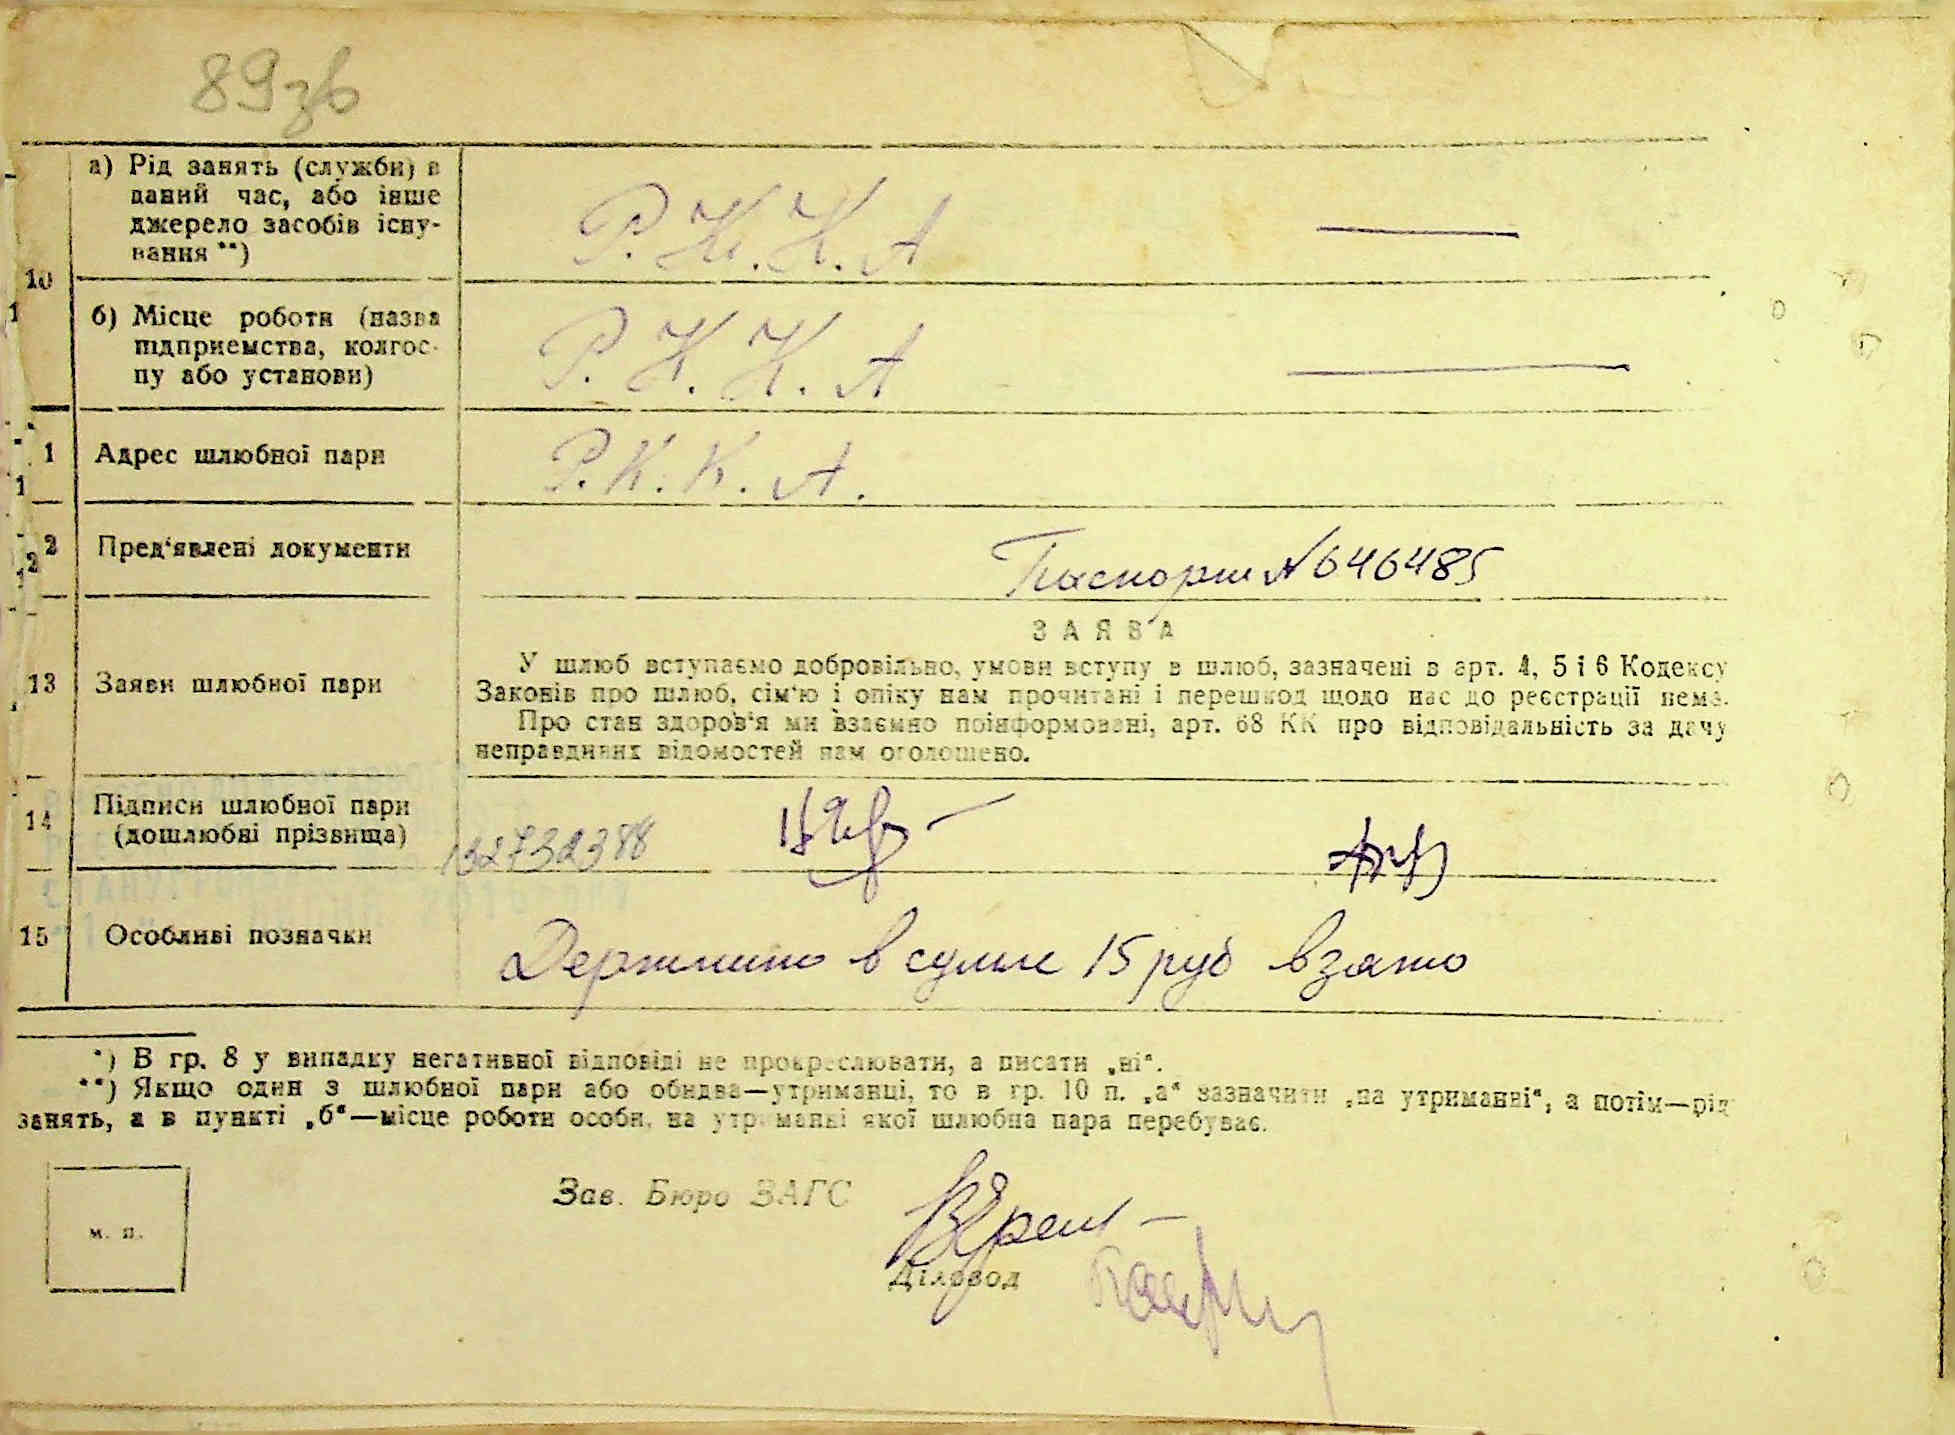 89зв
а) Рід занять (служби) в
даний час, або інше
джерело засобів існу-
вання **)
Р.К.К.А
10
б) Місце роботи (назва
підприємства, колгос-
пу або установи)
Р.К.К.А
1 Адрес шлюбної пари
Р.К.К.А.
2 Пред'явлені документи
Паспорт №646485
ЗАЯВА
13 Заяви шлюбної пари
У шлюб вступаємо добровільно, умови вступу в шлюб, зазначені в арт. 4, 5 і 6 Кодексу
Законів про шлюб, сім'ю і опіку нам прочитані і перешкод щодо нас до реєстрації нема.
Про стан здоров'я ми взаємно поінформовані, арт. 68 КК про відповідальність за дачу
неправдивих відомостей нам оголошено.
14 Підписи шлюбної пари
(дошлюбні прізвища)
132732388
15 Особливі позначки
Держмито в сумме 15 руб взято
*) В гр. 8 у випадку негативної відповіді не прокреслювати, а писати „ні“.
**) Якщо один з шлюбної пари або обидва—утриманці, то в гр. 10 п. „а“ зазначити „на утриманні“, а потім—рід
занять, а в пункті „б“—місце роботи особи, на утриманні якої шлюбна пара перебуває.
Зав. Бюро ЗАГС
м. п.
Діловод